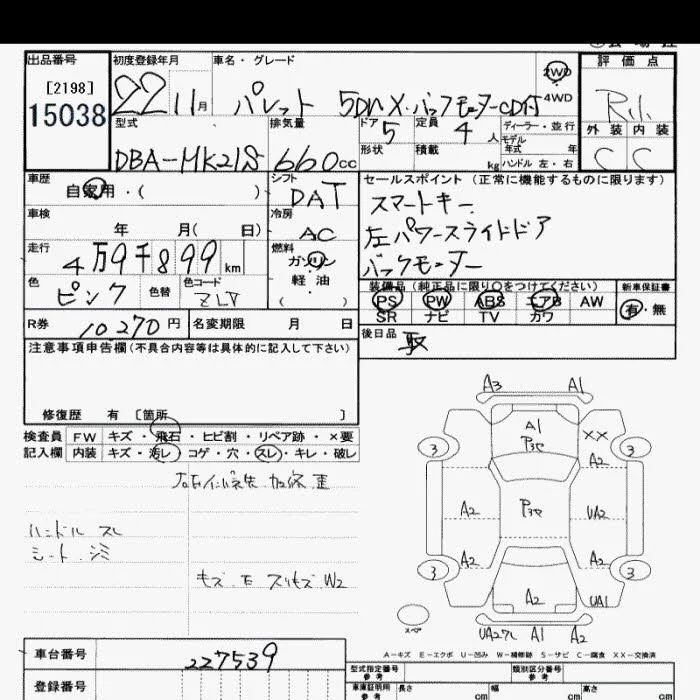 出品番号 初度登録年月 車名・グレード 評価点
[2198] 22 11月 パレット 5DW X・バックモーターCD付 2WD ・ 4WD
15038
型式 排気量 ドア 5 定員 4人 ディーラー・並行 外装 内装
DBA-MK21S 660cc 形状 積載 kg モデル年式 年 C C
ハンドル 左・右
車歴 自家用・( ) シフト DAT セールスポイント(正常に機能するものに限ります)
車検 年 月( 日) 冷房 AC スマートキー
走行 4万9千899km 燃料 ガソリン・軽油 ( ) 左パワースライドドア
バックモーター
色 ピンク 色替 色コード 装備品(純正品に限り○をつけてください) 新車保証書
PS PW ABS エアB AW 有・無
SR ナビ TV カワ
R券 10270円 名変期限 月 日 後日品 取
注意事項申告欄(不具合内容等は具体的に記入して下さい)
修復歴 有 〔箇所 〕
検査員 FW キズ・飛石・ヒビ割・リペア跡・×要
記入欄 内装 キズ・汚レ・コゲ・穴・スレ・キレ・破レ
ハンドル スレ
シート シミ
キズ・E スリキズ W2
A3 A1
A1
XX
3 3
A2
A2 UA2
A2 A2
3 3
A2 UA1
スペア
A1 A2
A-キズ E-エクボ U-凹み W-補修跡 S-サビ C-腐食 XX-交換済
車台番号 227539
登録番号
型式指定番号 参考 類別区分番号 参考
車庫証明用 参考 長さ cm 幅 cm 高さ cm